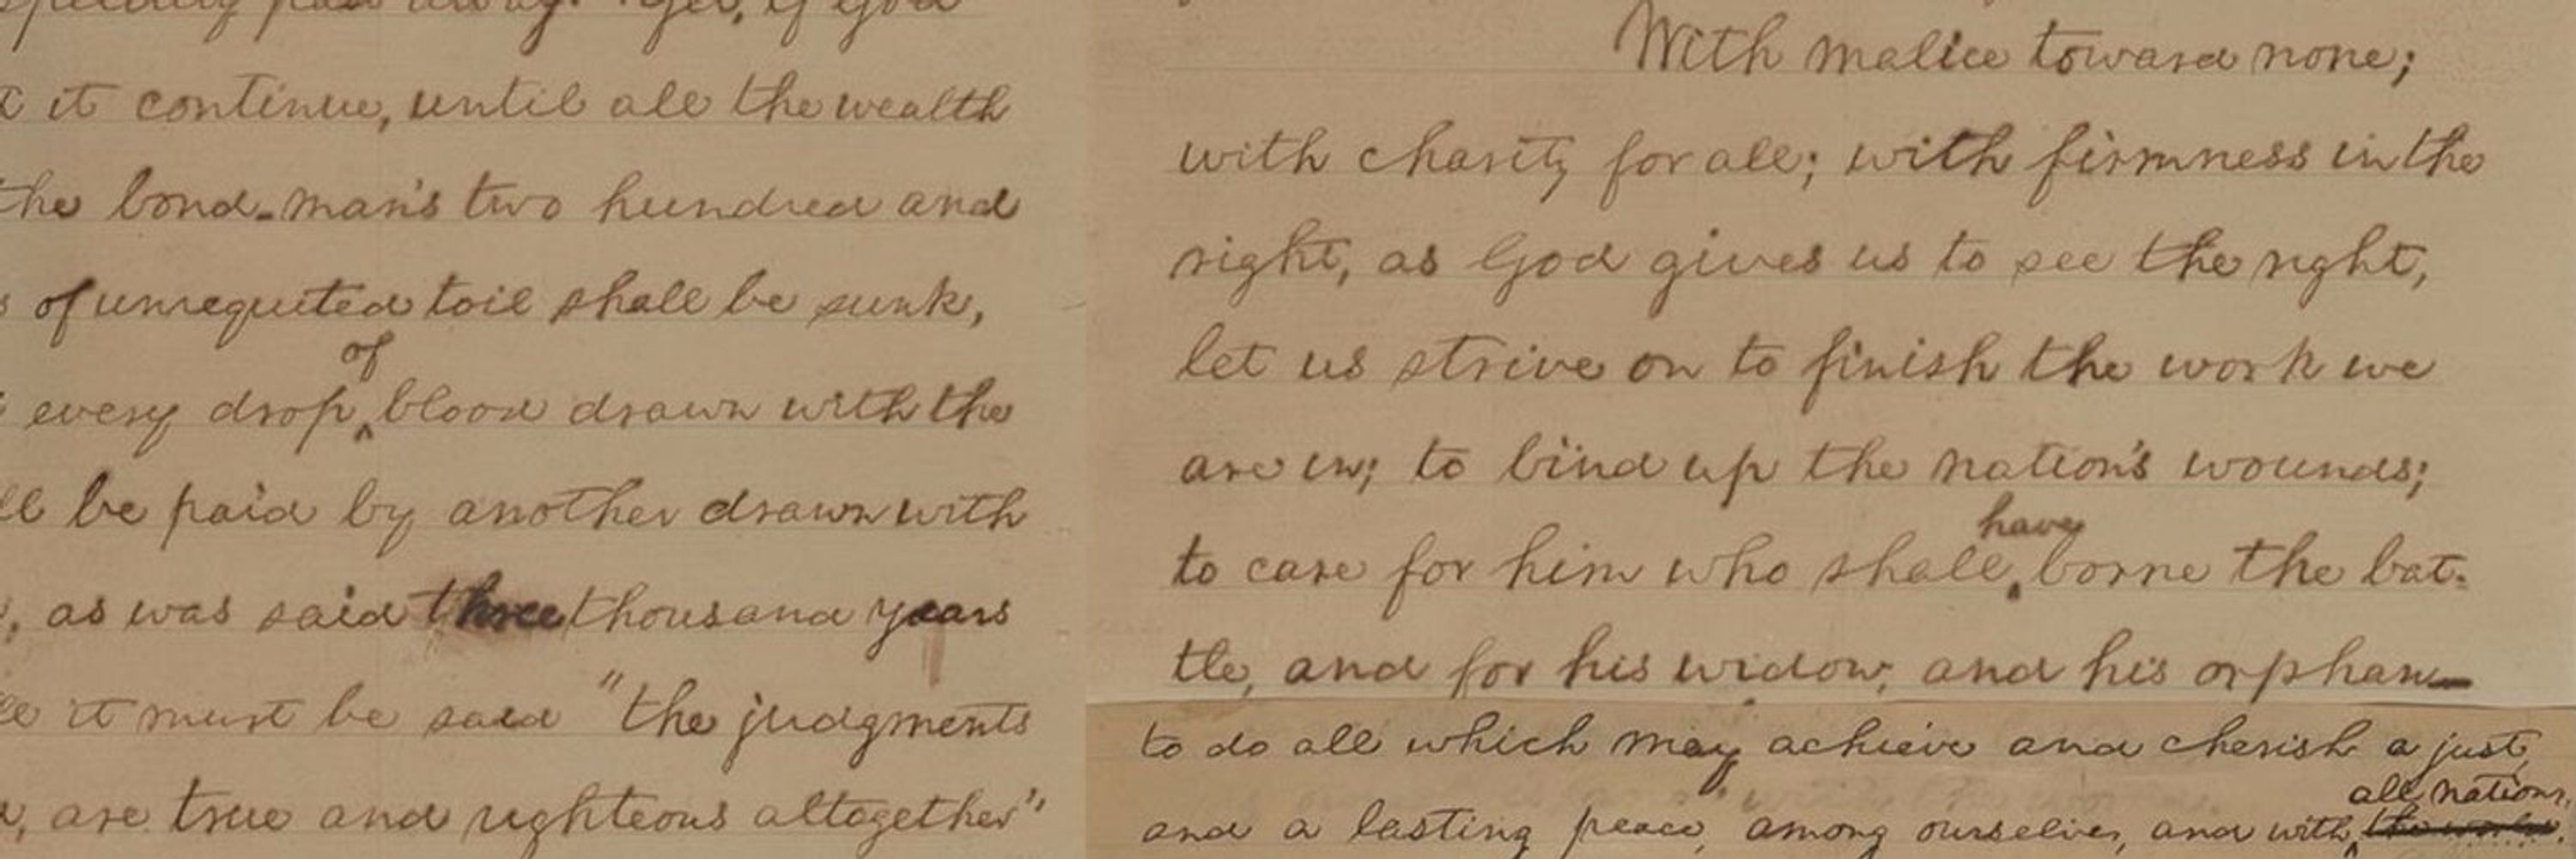 pass away. Yet, if God
it continue, until all the wealth
the bond-man's two hundred and
of unrequited toil shall be sunk,
of
every drop blood drawn with the
be paid by another drawn with
, as was said three thousand years
it must be said "the judgments
, are true and righteous altogether"
With malice toward none;
with charity for all; with firmness in the
right, as God gives us to see the right,
let us strive on to finish the work we
are in; to bind up the nation's wounds;
have
to care for him who shall borne the bat-
tle, and for his widow, and his orphan—
to do all which may achieve and cherish a just,
all nations.
and a lasting peace, among ourselves, and with the world.